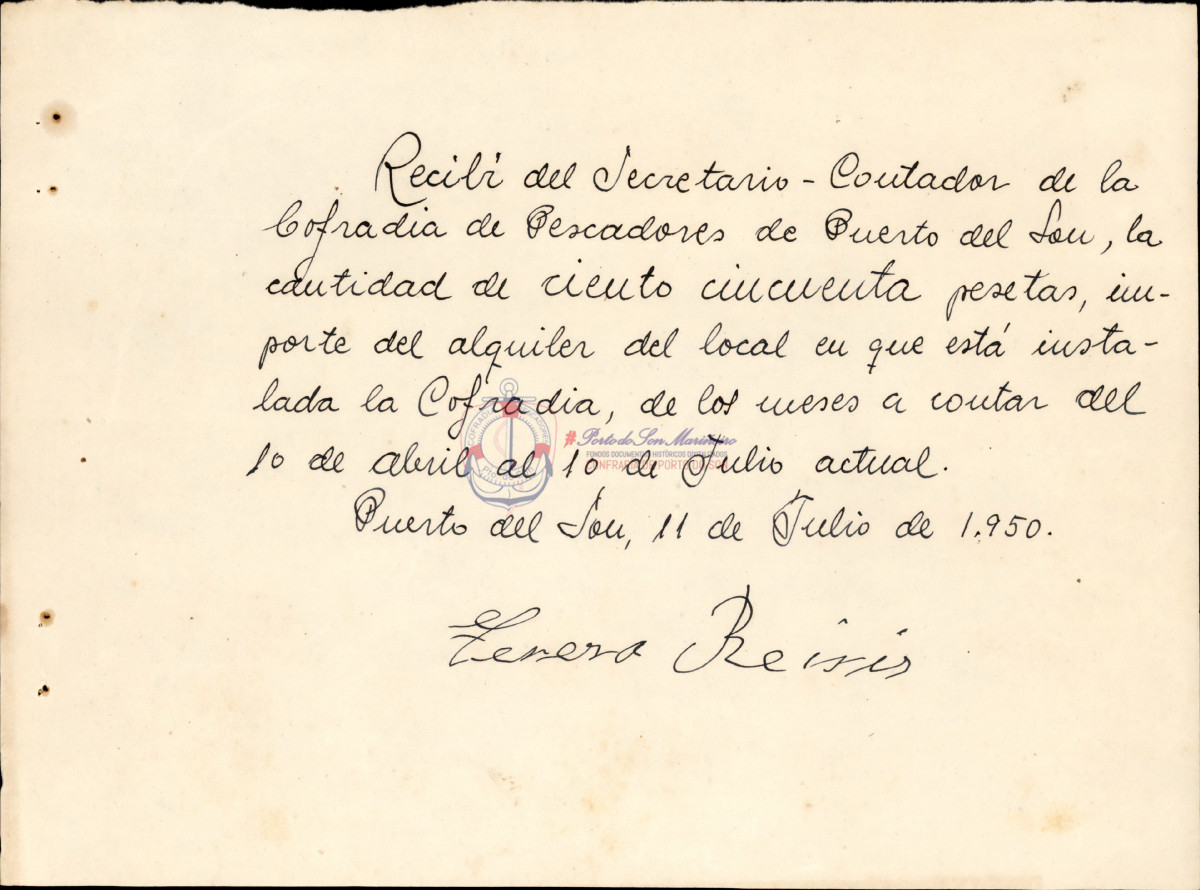 Recibí del Secretario - Contador de la
Cofradia de Pescadores de Puerto del Son, la
cantidad de ciento cincuenta pesetas, im-
porte del alquiler del local en que está insta-
lada la Cofradia, de los meses a contar del
10 de abril al 10 de Julio actual.
#PortodoSon Mariñeiro
FONDOS DOCUMENTAIS HISTÓRICOS DIGITALIZADOS
CONFRARÍA DE PORTO DO SON
Puerto del Son, 11 de Julio de 1.950.
Teresa